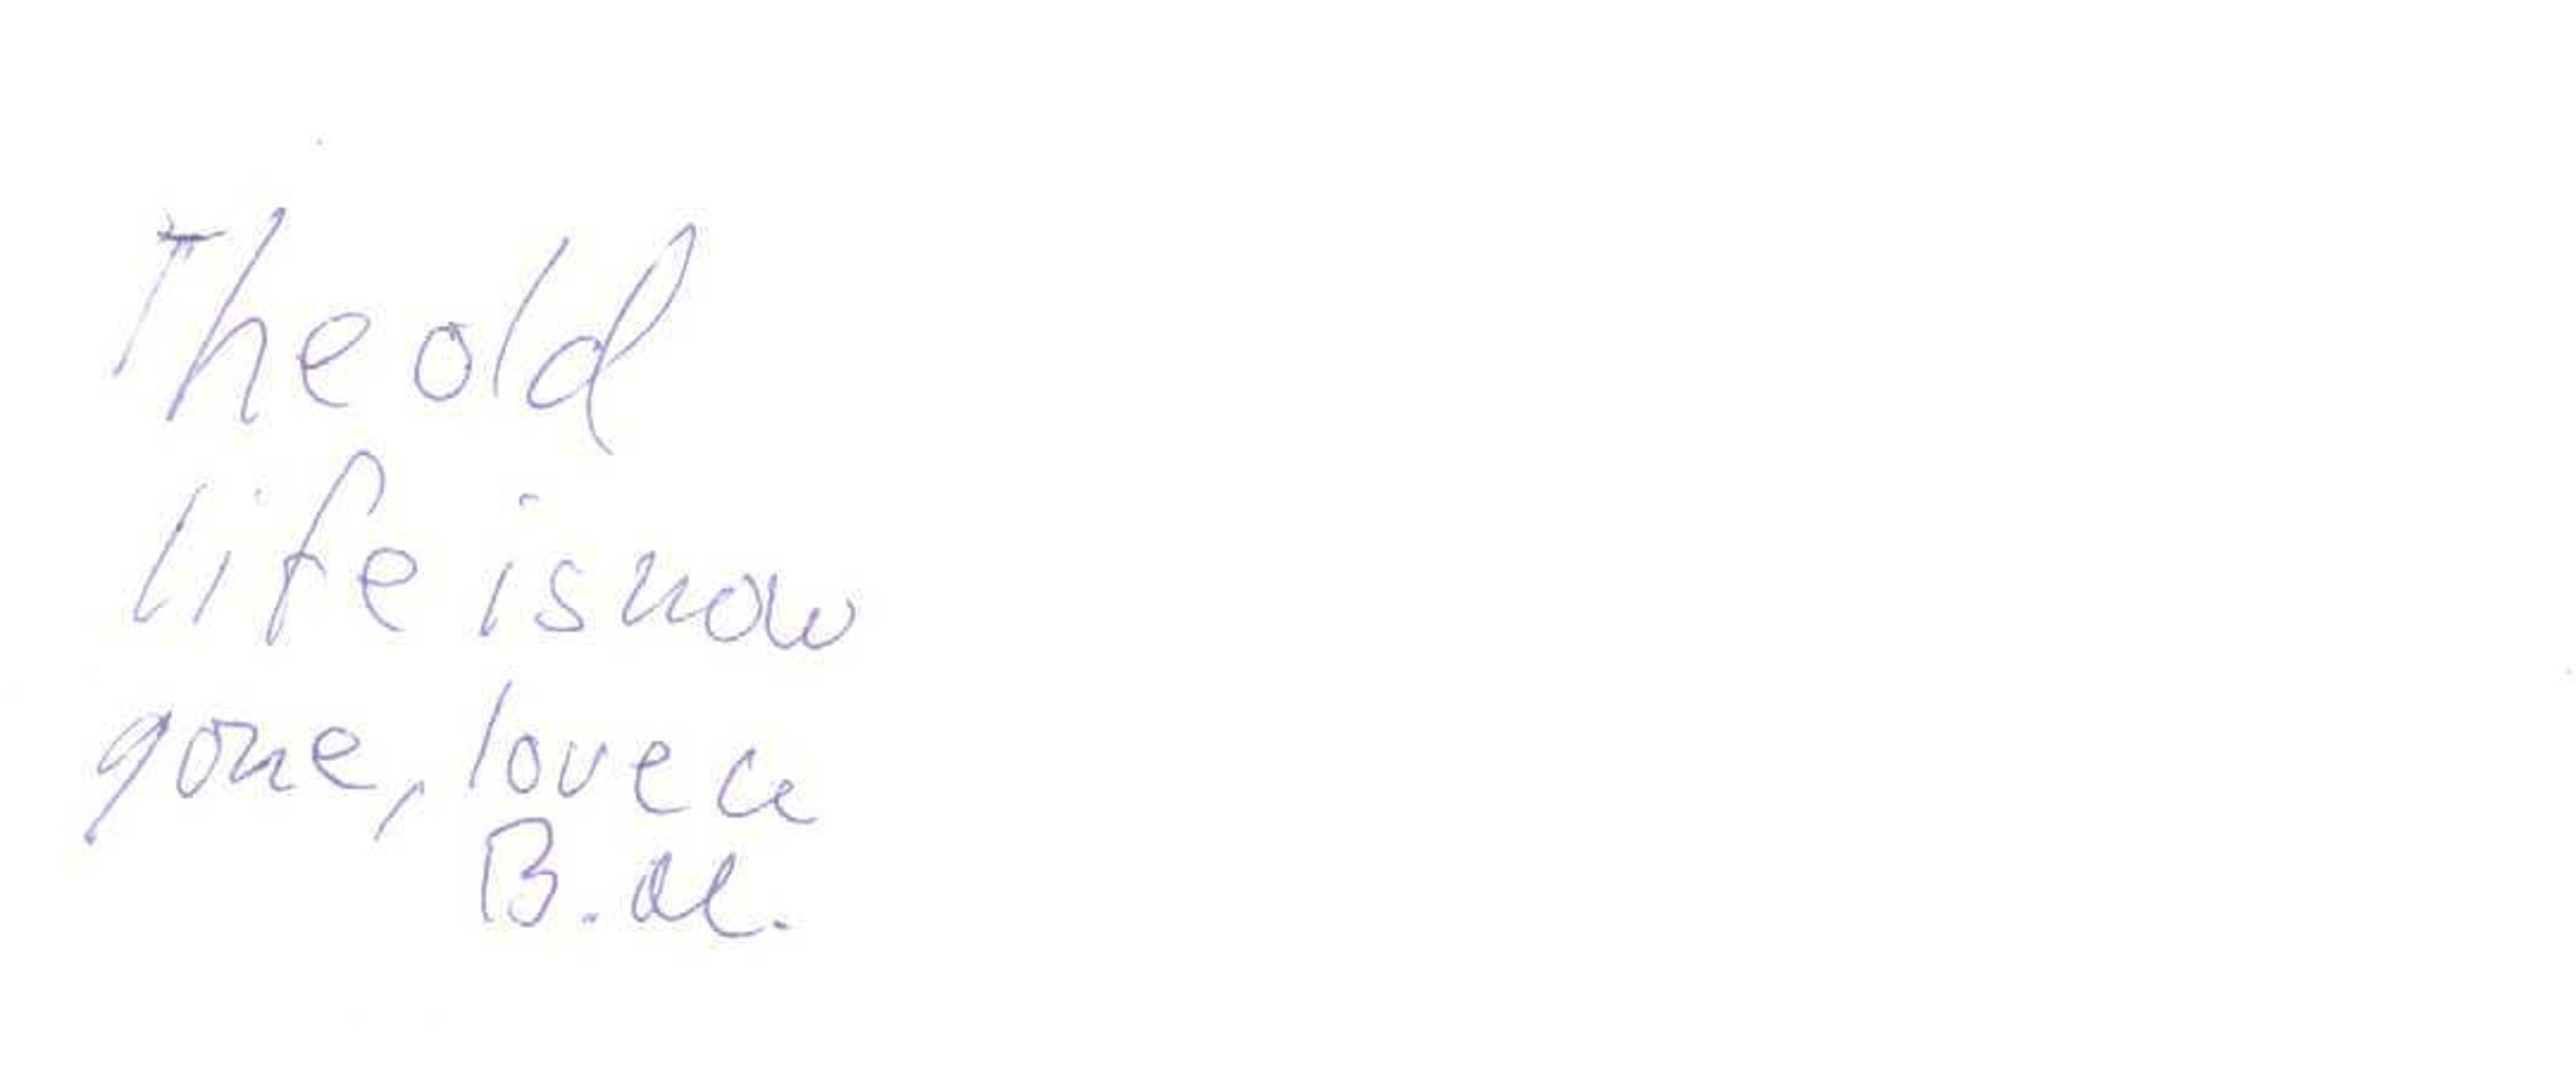 The old
life is now
gone, love u
B. M.